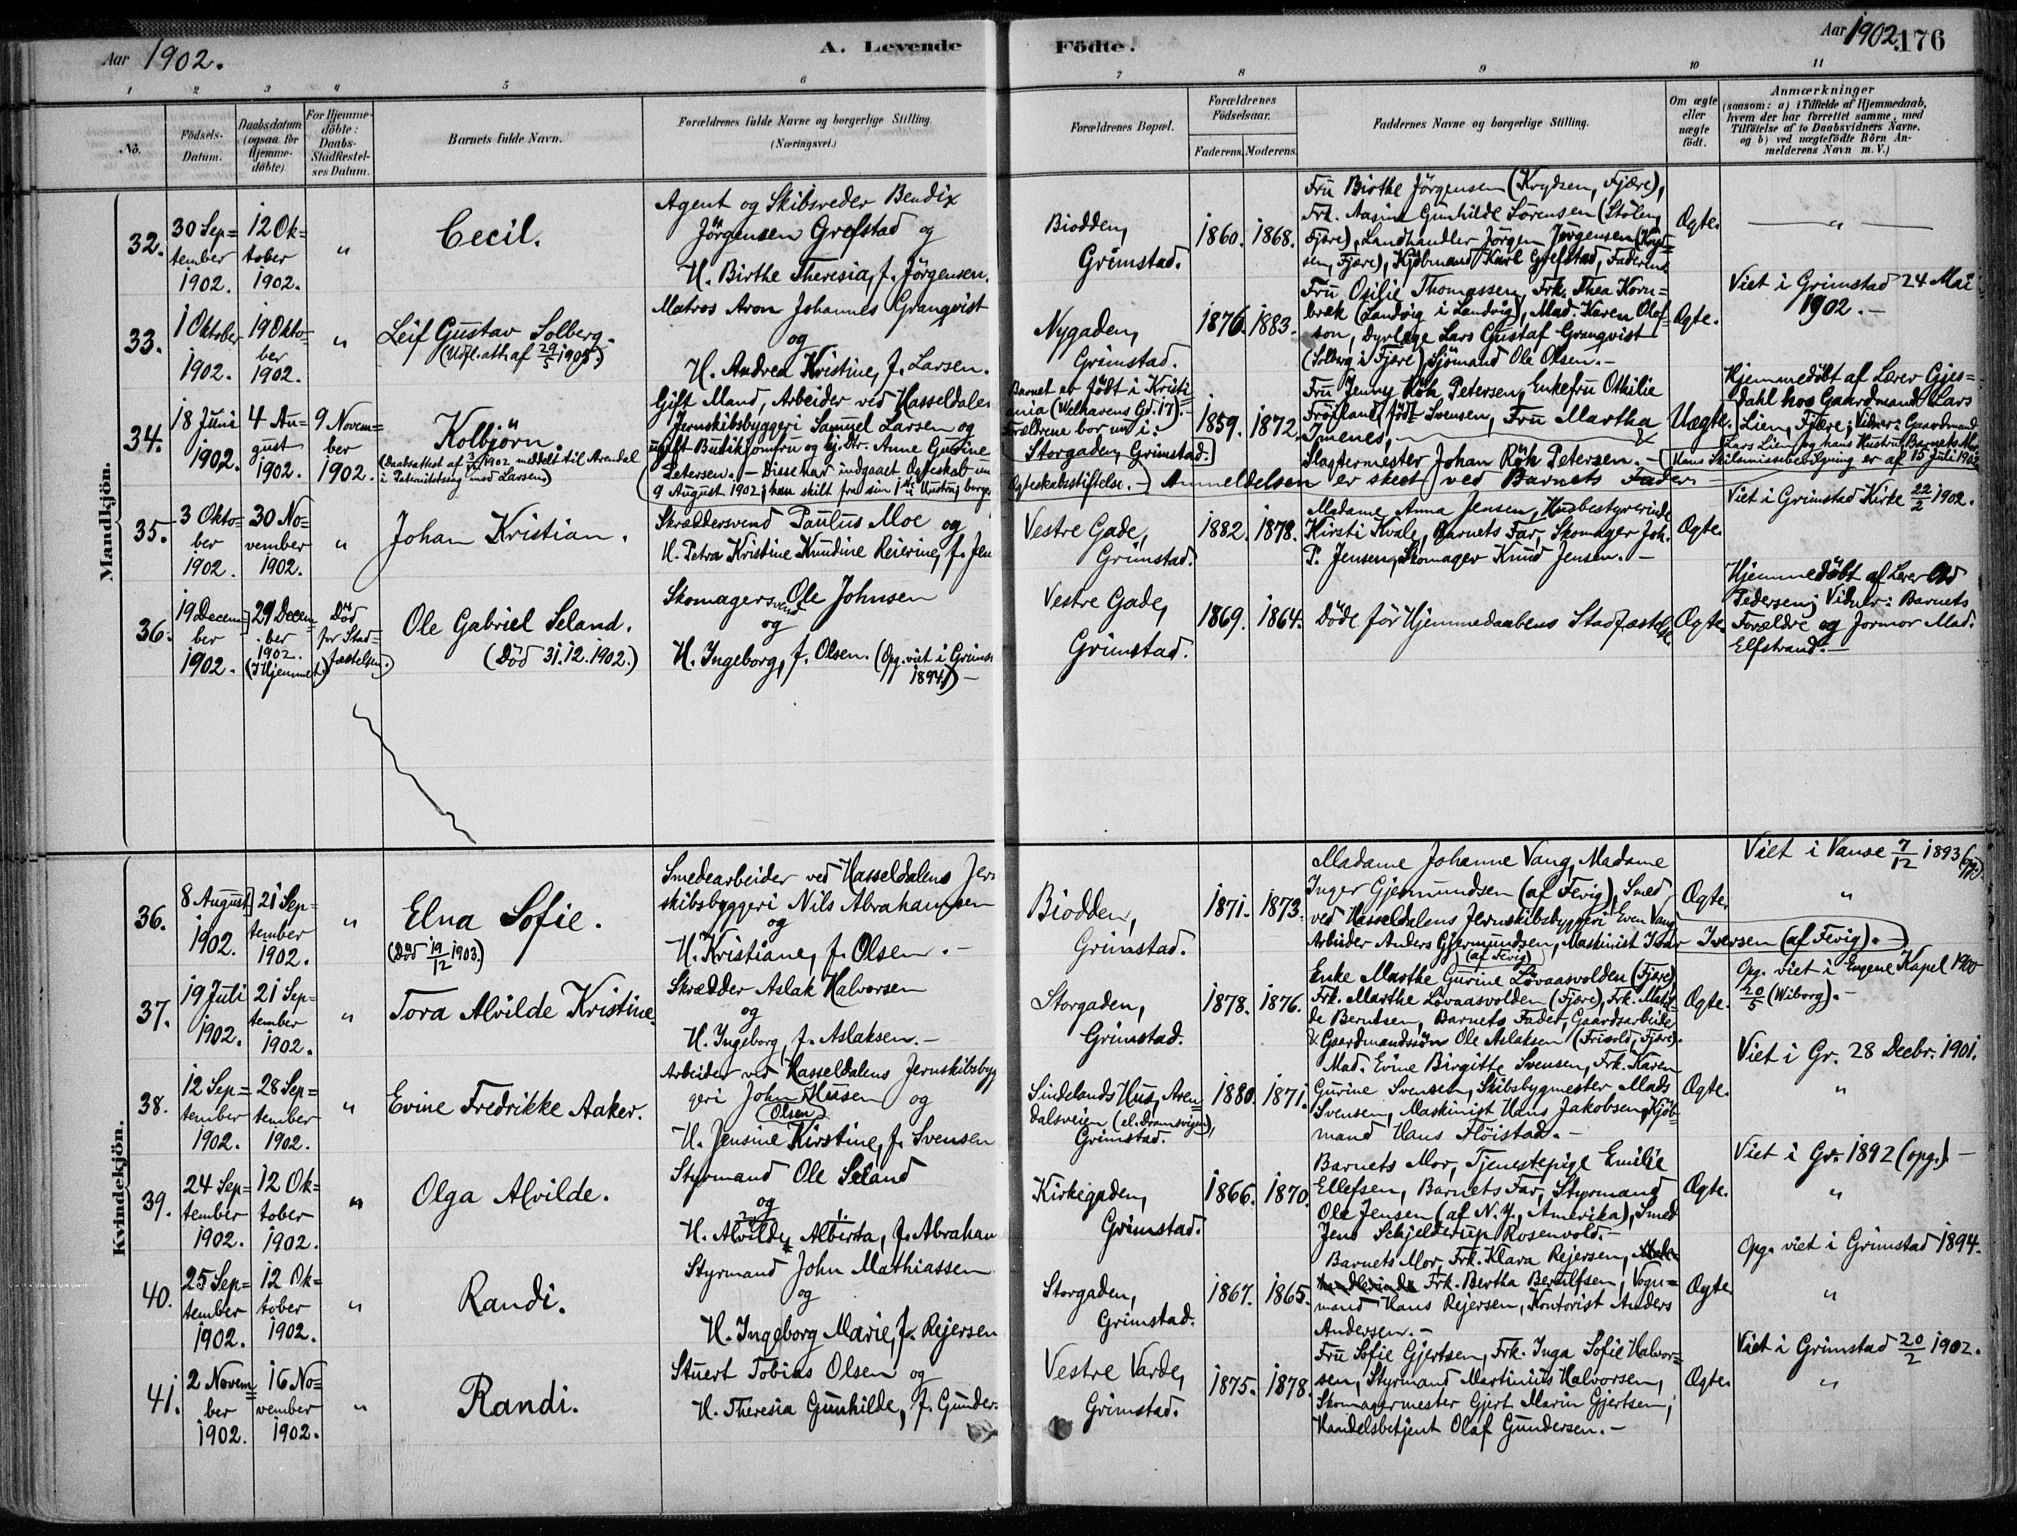 Aar 1902.
A. Levende
Födte.
Aar 1902.
176
1 2 3 4 5 6 7 8 9 10 11
No.
Födsels-
Datum.
Daabsdatum
(ogsaa for
Hjemme-
döbte)
For Hjemme-
döbte:
Daabs-
Stadfæstel-
ses Datum.
Barnets fulde Navn.
Forældrenes fulde Navne og borgerlige Stilling.
(Næringsvei.)
Forældrenes Bopæl.
Forældrenes
Födselsaar.
Faderens. Moderens.
Faddernes Navne og borgerlige Stilling.
Om ægte
eller
uægte
födt.
Anmærkninger
(saasom: a) i Tilfælde af Hjemmedaab,
hvem der har forrettet samme, med
Tilföielse af to Daabsvidners Navne,
og b) ved uægtefödte Börn An-
melderens Navn m. V.)
Mandkjön.
32.
30 Sep=
tember
1902.
12 Ok=
tober
1902.
"
Cecil.
Agent og Skibsreder Bendix
Jörgensen Grefstad og
H. Birthe Theresia, f. Jörgensen.
Biodden,
Grimstad.
1860. 1868.
Fru Birthe Jörgensen (Krydsen, Fjære),
Frk. Aasine Gunhilde Sörensen (Stölen,
Fjære), Landhandler Jörgen Jörgensen (Kryd=
sen, Fjære), Kjöbmand Karl Grefstad, Faderen.
Ægte.
"
33.
1 Oktober
1902.
19 Okto=
ber
1902.
"
Leif Gustav Solberg.
(Udfl. att. af 29/5 1905.)
Matros Aron Johannes Granqvist
og
H. Andrea Kristine, f. Larsen.
Nygaden,
Grimstad.
1876. 1883.
Fru Otilie Thomassen, Frk. Thea Korn=
bræk (Landvig i Landvig), Mad. Karen Olof=
son, Dyrlæge Lars Gustaf Granqvist
(Solberg i Fjære), Sjömand Ole Olsen.-
Ægte.
Viet i Grimstad 24 Mai
1902.-
34.
18 Juni
1902.
4 Au=
gust
1902.
9 Novem=
ber
1902.
Kolbjörn.
(Daabsattest af 3/12 1902 meddelt til Arendal
i Paternitetssag mod Larsen)
Gift Mand, Arbeider ved Hasseldalen
Jernskibsbyggeri Samuel Larsen og
ugift Butikjomfru og Sy. Dtr. Anne Gusine
Petersen. - Disse har indgaaet Ægteskab
9 August 1902; han skilt fra sin 1ste Hustru, borger
Barnet er født i Kristi
ania (Welhavens Gd. 17).-
Forældrene bor nu i:
Storgaden, Grimstad.
Ægteskabsstiftelse.-) Anmeldelsen er skeet ved Barnets Fader
1859. 1872.
Fru Jenny Röh Petersen, Enkefru Othilie
Fröiland, födt Svensen, Fru Martha
Imenes,
Slagtermester Johan Röh Petersen.-
Uægte.
Hjemmedöbt af Lærer Gjes=
dahl hos Gaardmand Lars
Lien, Fjære; Vidner: Gaardmand
Lars Lien og hans Hustru, Barnets Mo.
Hans Skilsmissebevilgning er af 15 Juli 1902
35.
3 Okto=
ber
1902.
30 No=
vember
1902.
"
Johan Kristian.
Skræddersvend Paulus Moe og
H. Petra Kristine Knudine Reierine, f. Jen
Vestre Gade,
Grimstad.
1882. 1878.
Madame Anna Jensen, Husbestyrerinde
Kirsti Kvale, Barnets Far, Skomager Joh.
P. Jensen, Skomager Knud Jensen.-
Ægte.
Viet i Grimstad Kirke 22/2 1902.
36.
19 Decem=
ber
1902.
29 Decem
ber
1902.
(I Hjemmet.)
Död
för Stad=
fæstelsen.)
Ole Gabriel Seland.
(Död 31.12.1902.)
Skomagersvend Ole Johnsen
og
H. Ingeborg, f. Olsen. (Opg. viet i Grimst
1894.)-
Vestre Gade,
Grimstad.
1869. 1864.
Döde för Hjemmedaabens Stadfæstelse.
Ægte.
Hjemmedöbt af Lærer Od
Pedersen; Vidner: Barnets
Forældre og Jormor Mad.
Elfstrand.-
Kvindekjön.
36.
8 August
1902.
21 Sep=
tember
1902.
"
Elna Sofie.
(Död 19/12 1903.)
Smedearbeider ved Hasseldalens Jern
skibsbyggeri Nils Abrahamsen
og
H. Kristiane, f. Olsen.-
Biodden,
Grimstad.
1871. 1873.
Madame Johanne Vang, Madame
Inger Gjermundsen (af Fevig), Smed
ved Hasseldalens Jernskibsbyggeri Even Vang,
Arbeider Anders Gjermundsen, Maskinist Ivar Iversen (af Fevig).-
(af Fevig)
Ægte.
Viet i Vanse 7/12 1893
"
37.
19 Juli
1902.
21 Sep=
tember
1902.
"
Tora Alvilde Kristine.
Skrædder Aslak Halvorsen
og
H. Ingeborg, f. Aslaksen.-
Storgaden,
Grimstad.
1878. 1876.
Enke Marthe Gurine Lövaasvolden (Fjære),
Frk. Marthe Lövaasvolden (Fjære), Frk. Mathil=
de Berntsen, Barnets Fader, Gaardsarbeider
& Gaardmandssön Ole Aslaksen (Frivold, Fjære).
Ægte.
Opg. viet i Eugene Kapel 1900
20/5 (Wiborg).-
38.
12 Sep=
tember
1902.
28 Sep=
tember
1902.
"
Evine Fredrikke Aaker.
Arbeider ved Hasseldalens Jernskibsbyg
geri John Husen og
(Olsen)
H. Jensine Kirstine, f. Svensen
Sindelands Hus, Aren=
dalsveien (el. Dramsvigen),
Grimstad.
1880. 1871.
Mad. Evine Birgitte Svensen, Frk. Karen
Gurine Svensen, Skibsbygmester Mads
Svensen, Maskinist Hans Jakobsen, Kjöb=
mand Hans Flöistad.-
Ægte.
Viet i Gr. 28 Decbr. 1901.
"
39.
24 Sep=
tember
1902.
12 Ok=
tober
1902.
"
Olga Alvilde.
Styrmand Ole Seland
og
H. Alvilde Alberta, f. Abraham
Kirkegaden,
Grimstad.
1866. 1870.
Barnets Mor, Tjenestepige Emilie
Ellefsen, Barnets Far, Styrmand
Ole Jensen (af N.Y., Amerika), Smed
Jens Schjelderup Rosenvold.-
Ægte.
Viet i Gr. 1892 (opg.).-
"
40.
25 Sep=
tember
1902.
12 Ok=
tober
1902.
"
Randi.
Styrmand John Mathiassen
og
H. Ingeborg Marie, f. Rejersen
Storgaden,
Grimstad.
1867. 1865.
Barnets Mor, Frk. Klara Rejersen,
Frk. Bertha Berulfsen, Vogn=
mand Hans Rejersen, Kontorist Anders
Andersen.-
Ægte
Opg. viet i Grimstad 1894.
"
41.
2 Novem=
ber
1902.
16 No=
vember
1902.
"
Randi.
Stuert Tobias Olsen og
H. Theresia Gunhilde, f. Gunder
Vestre Varde,
Grimstad.
1875. 1878.
Fru Sofie Gjertsen, Frk. Inga Sofie Halvor=
sen, Styrmand Martinius Halvorsen,
Skomagermester Gjert Marin Gjertsen,
Handelsbetjent Olaf Gundersen.-
Ægte.
Viet i Grimstad 20/2 1902.
"